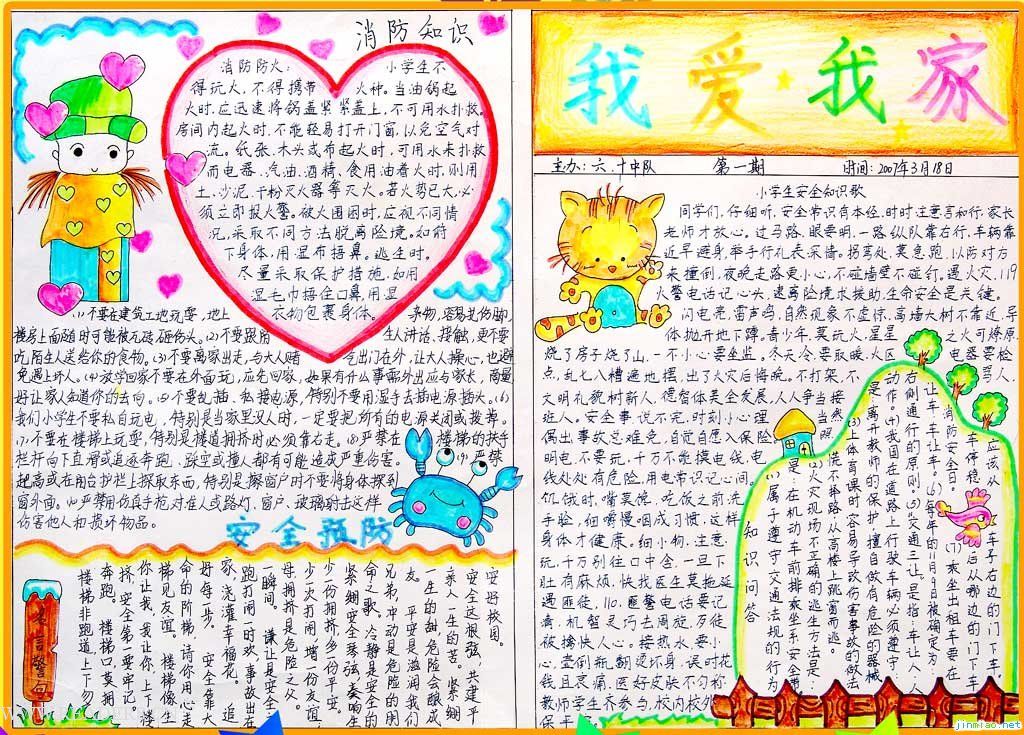 消防知识
消防防火:
小学生不
得玩火，不得携带
火种。当油锅起
火时，应迅速将锅盖紧紧盖上，不可用水扑救。
房间内起火时，不能轻易打开门窗，以免空气对
流。纸张、木头或布起火时，可用水来扑救
而电器、汽油、酒精、食用油着火时，则用
土、沙泥、干粉灭火器等灭火。若火势已大，必
须立即报火警。被火围困时，应视不同情
况，采取不同方法脱离险境。如俯
下身体，用湿布捂鼻。逃生时。
尽量采取保护措施，如用
湿毛巾捂住口鼻，用湿
衣物包裹身体。
(1)不要在建筑工地玩耍，地上
杂物，容易扎伤脚，
楼房上面随时可能被瓦砖砸伤头。(2)不要跟陌
生人讲话，接触，更不要
吃陌生人送给你的食物。(3)不要离家出走，与大人赌
气出门在外，让大人操心，也避
免遇上坏人。(4)放学回家不要在外面玩，应先回家，如果有什么事需外出应与家长，商量
好让家人知道你的去向。(5)不要乱插、私接电源，特别不要用湿手去插电源插头。(6)
我们小学生不要私自玩电，特别是当家里没人时，一定要把所有的电源关闭或拨掉。
(7)不要在楼梯上玩耍，特别是楼道拥挤时必须靠右走。(8)严禁在
楼梯的扶手
栏杆向下直滑或追逐奔跑、踩空或撞人都有可能造成严重伤害。
(9)严禁
爬高或在阳台护栏上探取东西，特别是擦窗户时不要将身体探到
窗外面。(10)严禁用仿真手枪对准人或路灯、窗户、玻璃射击这样
伤害他人和损坏物品。
安全预防
安好校园。
安全这根弦，共建平
亲人一生的苦。紧绷
一生的甜，危险会酿成
友。平安是滋润我们
兄弟，冲动是危险的朋
命之歌。冷静是安全的
紧绷安全琴弦，奏响生
少一份拥挤，多一份平安。
少一次打闹，增一份友谊，
母，拥挤是危险之父。
一瞬间。谦让是安全之
跑打闹一时欢，事故出在
家，浇灌幸福花。追
好每一步。安全靠大
命的阶梯，请你用心走
梯见友谊。楼梯像生
你让我，我让你，上下楼
挤，安全第一要牢记。
奔跑。楼梯口，莫拥
楼梯非跑道，上下勿
名言警句
我爱我家
主办:六.十中队
第一期
时间:2007年3月18日
小学生安全知识歌
同学们，仔细听，安全常识有本经，时时注意言和行，家长
老师才放心。过马路，眼要明，一路纵队靠右行，车辆靠
近早避身，举手行礼表深情。拐弯处，莫急跑，以防对方
来撞倒，夜晚走路更小心，不碰墙壁不碰钉。遇火灾，119
火警电话记心头，逃离险境求援助，生命安全是关键。
闪电亮，雷声鸣，自然现象不虚惊，离墙大树不靠近，导
体抛开地下蹲。青少年，莫玩火，星星
之火可燎原，
烧了房子烧了山，一不小心要坐监。冬天冷，要取暖，火区
电器要检
点，乱七八糟遍地摆，出了火灾后悔晚。不打架，不
骂人，
文明礼貌树新人，德智体美全发展，人人争当接
班人。安全事，说不完，时刻小心理
当然，
偶出事故总难免，自觉自愿入保险
明电，不要玩，千万不能摸电线，电
线处处有危险，用电常识记心间。
饥饿时，嘴莫馋，吃饭之前洗
手脸，细嚼慢咽成习惯，这样
身体才健康。细小物，注意
玩，千万别往口中含，一旦下
肚有麻烦，快找医生莫拖延
遇匪徒，110，匪警电话要记
清，机智灵巧去周旋，歹徒
被擒快人心。接热水，要小
心，烫倒瓶，翻烫坏身，误时花
钱且哀痛，医好皮肤不匀称
教师学生齐参与，校内校外
保平
应该从车子右边的门下车。
车停稳后从哪边的门下车?
(7)乘坐出租车要在
消防安全日。
(6)每年的11月9日被确定为
让车，车让车，车让人，人
右侧通行的原则。(5)“交通三让”是指:车让人，
动作。(4)我国在道路上行驶车辆必须遵守
是离开教师的保护，擅自做有危险的器械
(3)上体育课时容易导致伤害事故的做法
慌不择路从高楼上跳窗而逃。
(2)火灾现场不正确的逃生方法是:
是:在机动车前排乘坐系安全带。
(1)属于遵守交通法规的行为
知识问答
jinmiao.net